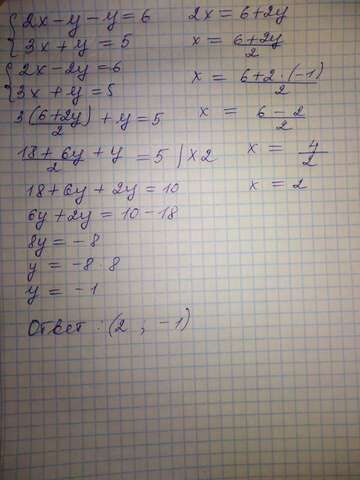 2x - y - y = 6
3x + y = 5
2x - 2y = 6
3x + y = 5
3(6+2y)/2 + y = 5
18 + 6y/2 + y = 5 | x 2
18 + 6y + 2y = 10
6y + 2y = 10 - 18
8y = -8
y = -8 : 8
y = -1
Ответ : (2 ; -1)
2x = 6 + 2y
x = 6 + 2y/2
x = 6 + 2 · (-1)/2
x = 6 - 2/2
x = 4/2
x = 2